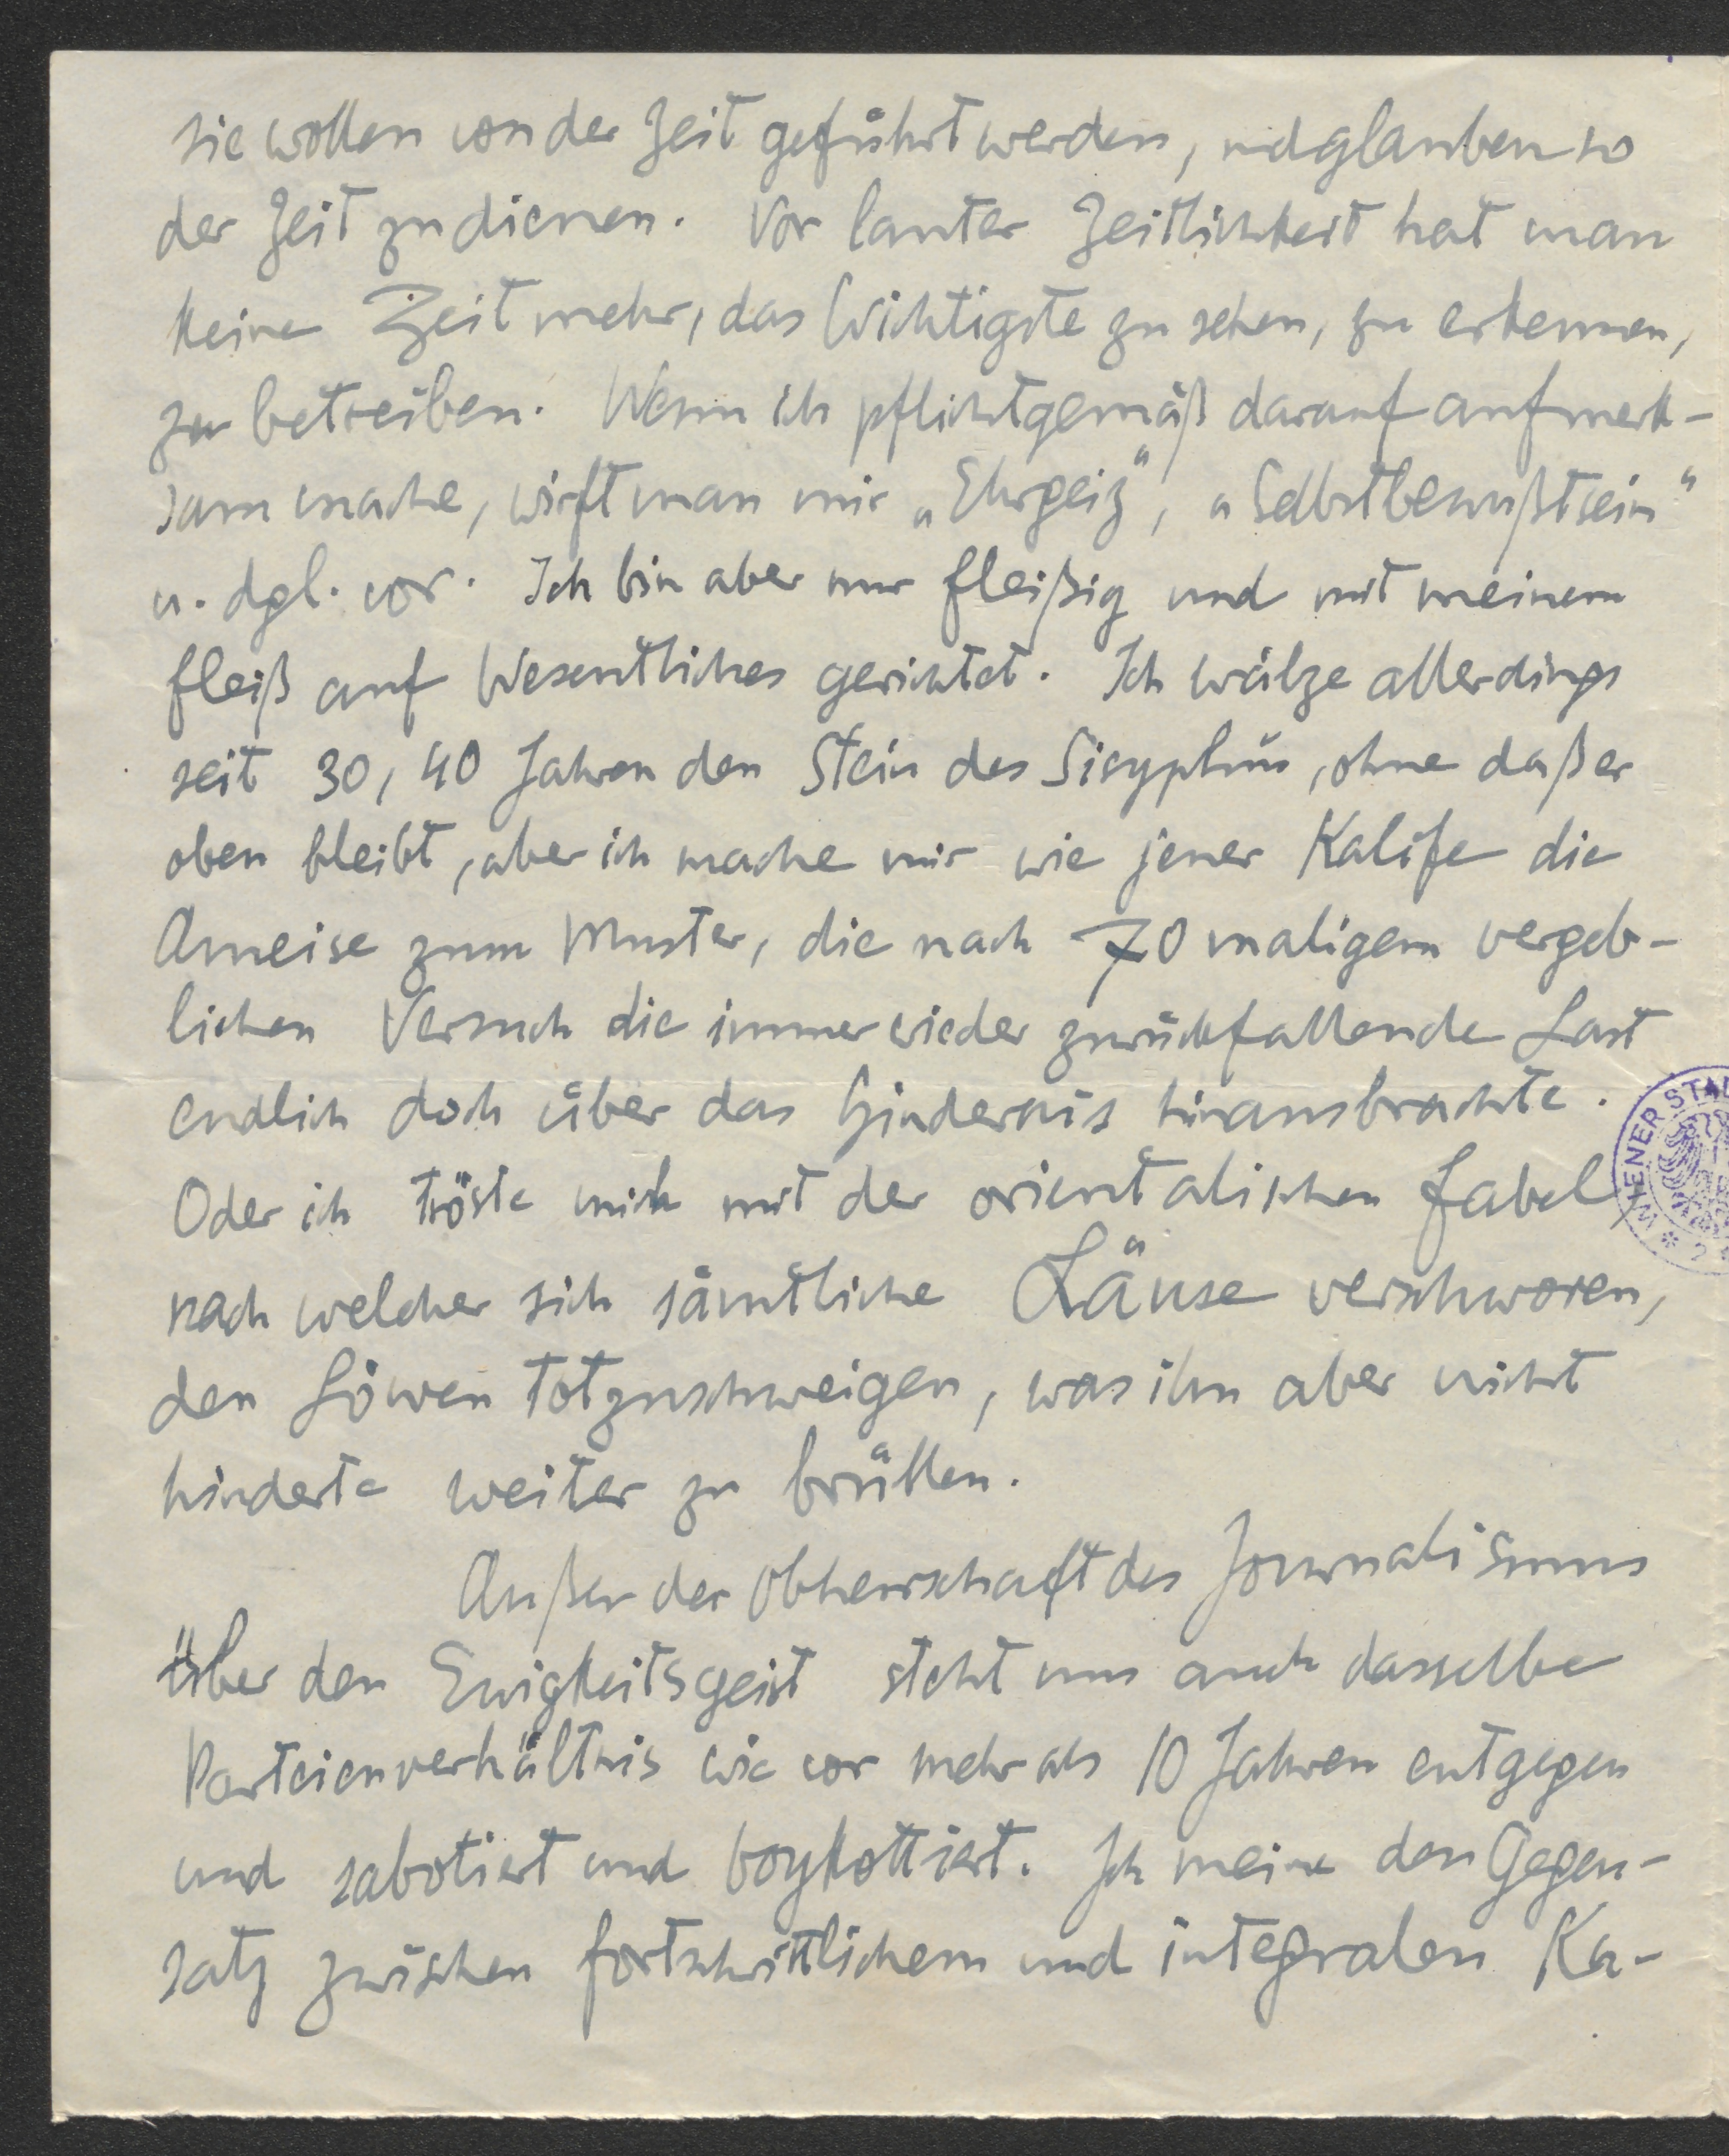 sie wollen von der Zeit geführt werden, und glauben so
der Zeit zu dienen. Vor lauter Zeitlichkeit hat man
keine Zeit mehr, das Wichtigste zu sehen, zu erkennen,
zu betreiben. Wenn ich pflichtgemäß darauf aufmerk-
sam mache, wirft man mir „Ehrgeiz", „Selbstbewußtsein"
u. dgl. vor. Ich bin aber nur fleißig und mit meinem
Fleiß auf Wesentliches gerichtet. Ich wälze allerdings
seit 30, 40 Jahren den Stein des Sisyphus, ohne daß er
oben bleibt, aber ich mache mir wie jener Kalife die
Ameise zum Muster, die nach 70 maligem vergeb-
lichen Versuch die immer wieder zurückfallende Last
endlich doch über das Hindernis hinausbrachte.
Oder ich tröste mich mit der orientalischen Fabel,
nach welcher sich sämtliche Läuse verschworen,
den Löwen totzuschweigen, was ihn aber nicht
hinderte weiter zu brüllen.
Außer der Obherrschaft des Journalismus
über den Ewigkeitsgeist steht uns auch dasselbe
Parteienverhältnis wie vor mehr als 10 Jahren entgegen
und sabotiert und boykottiert. Ich meine den Gegen-
satz zwischen fortschrittlichem und integralen Ka-
WIENER STAD